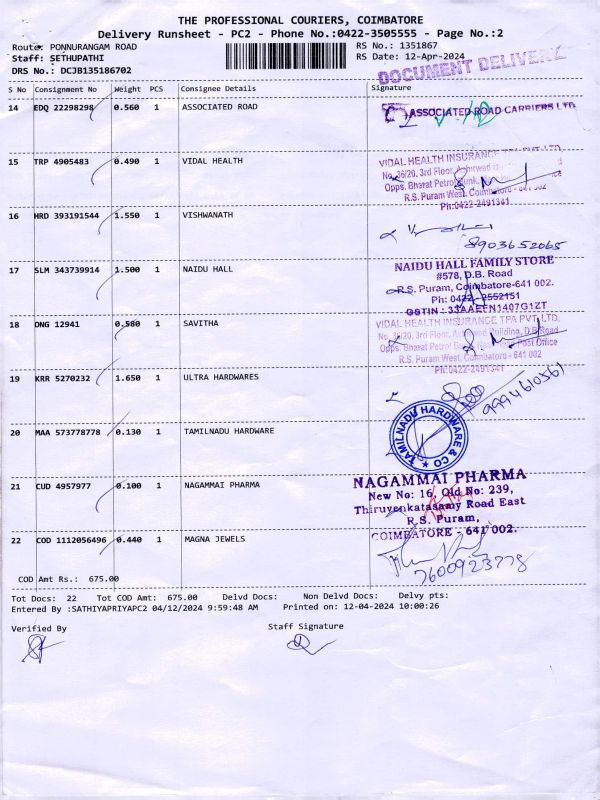 THE PROFESSIONAL COURIERS, COIMBATORE
Delivery Runsheet - PC2 - Phone No.:0422-3505555 - Page No.:2
Route: PONNURANGAM ROAD
RS No.: 1351867
Staff: SETHUPATHI
RS Date: 12-Apr-2024
DRS No.: DCJB135186702
DOCUMENT DELIVERY
S No Consignment No Weight PCS Consignee Details Signature
14 EDQ 22298298 0.560 1 ASSOCIATED ROAD
ASSOCIATED ROAD CARRIERS LTD
15 TRP 4905483 0.490 1 VIDAL HEALTH
VIDAL HEALTH INSURANCE TPA PVT. LTD.
No. 36/20, 3rd Floor,
Opps. Bharat Petrol Bunk,
R.S. Puram West, Coimbatore - 641 002
Ph:0422-2491341
16 HRD 393191544 1.550 1 VISHWANATH
8903652065
17 SLM 343739914 1.500 1 NAIDU HALL
NAIDU HALL FAMILY STORE
#578, D.B. Road
R.S. Puram, Coimbatore-641 002.
Ph: 0422-2552151
GSTIN : 33AAEFN1407G1ZT
18 ONG 12941 0.580 1 SAVITHA
VIDAL HEALTH INSURANCE TPA PVT. LTD.
No. 36/20, 3rd Floor, Building, D.B.Road
Opps. Bharat Petrol Post Office
R.S. Puram West, Coimbatore - 641 002
Ph:0422-2491341
19 KRR 5270232 1.650 1 ULTRA HARDWARES
9994610561
20 MAA 573778778 0.130 1 TAMILNADU HARDWARE
TAMILNADU HARDWARE & CO
21 CUD 4957977 0.100 1 NAGAMMAI PHARMA
NAGAMMAI PHARMA
New No: 16, Old No: 239,
Thiruvenkatasamy Road East
R.S. Puram,
COIMBATORE - 641 002.
22 COD 1112056496 0.440 1 MAGNA JEWELS
7600923778
COD Amt Rs.: 675.00
Tot Docs: 22 Tot COD Amt: 675.00 Delvd Docs: Non Delvd Docs: Delvy pts:
Entered By :SATHIYAPRIYAPC2 04/12/2024 9:59:48 AM Printed on: 12-04-2024 10:00:26
Verified By
Staff Signature